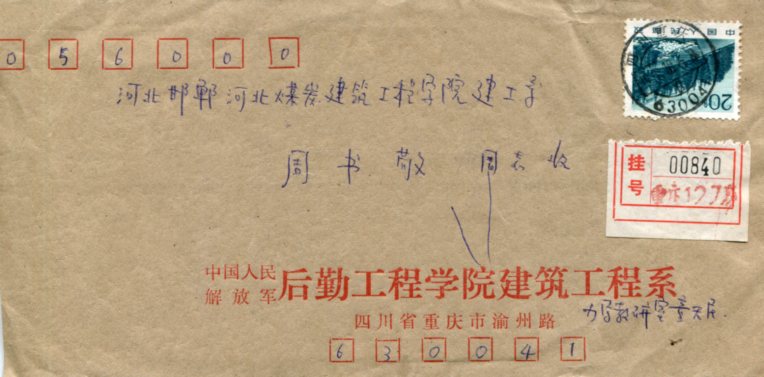 056000
河北邯郸河北煤炭建筑工程学院建工系
周书敬 同志收
中国人民邮政
20分
63004
挂号 00840
重庆127
中国人民解放军 后勤工程学院建筑工程系
力学教研室
四川省重庆市渝州路
630041